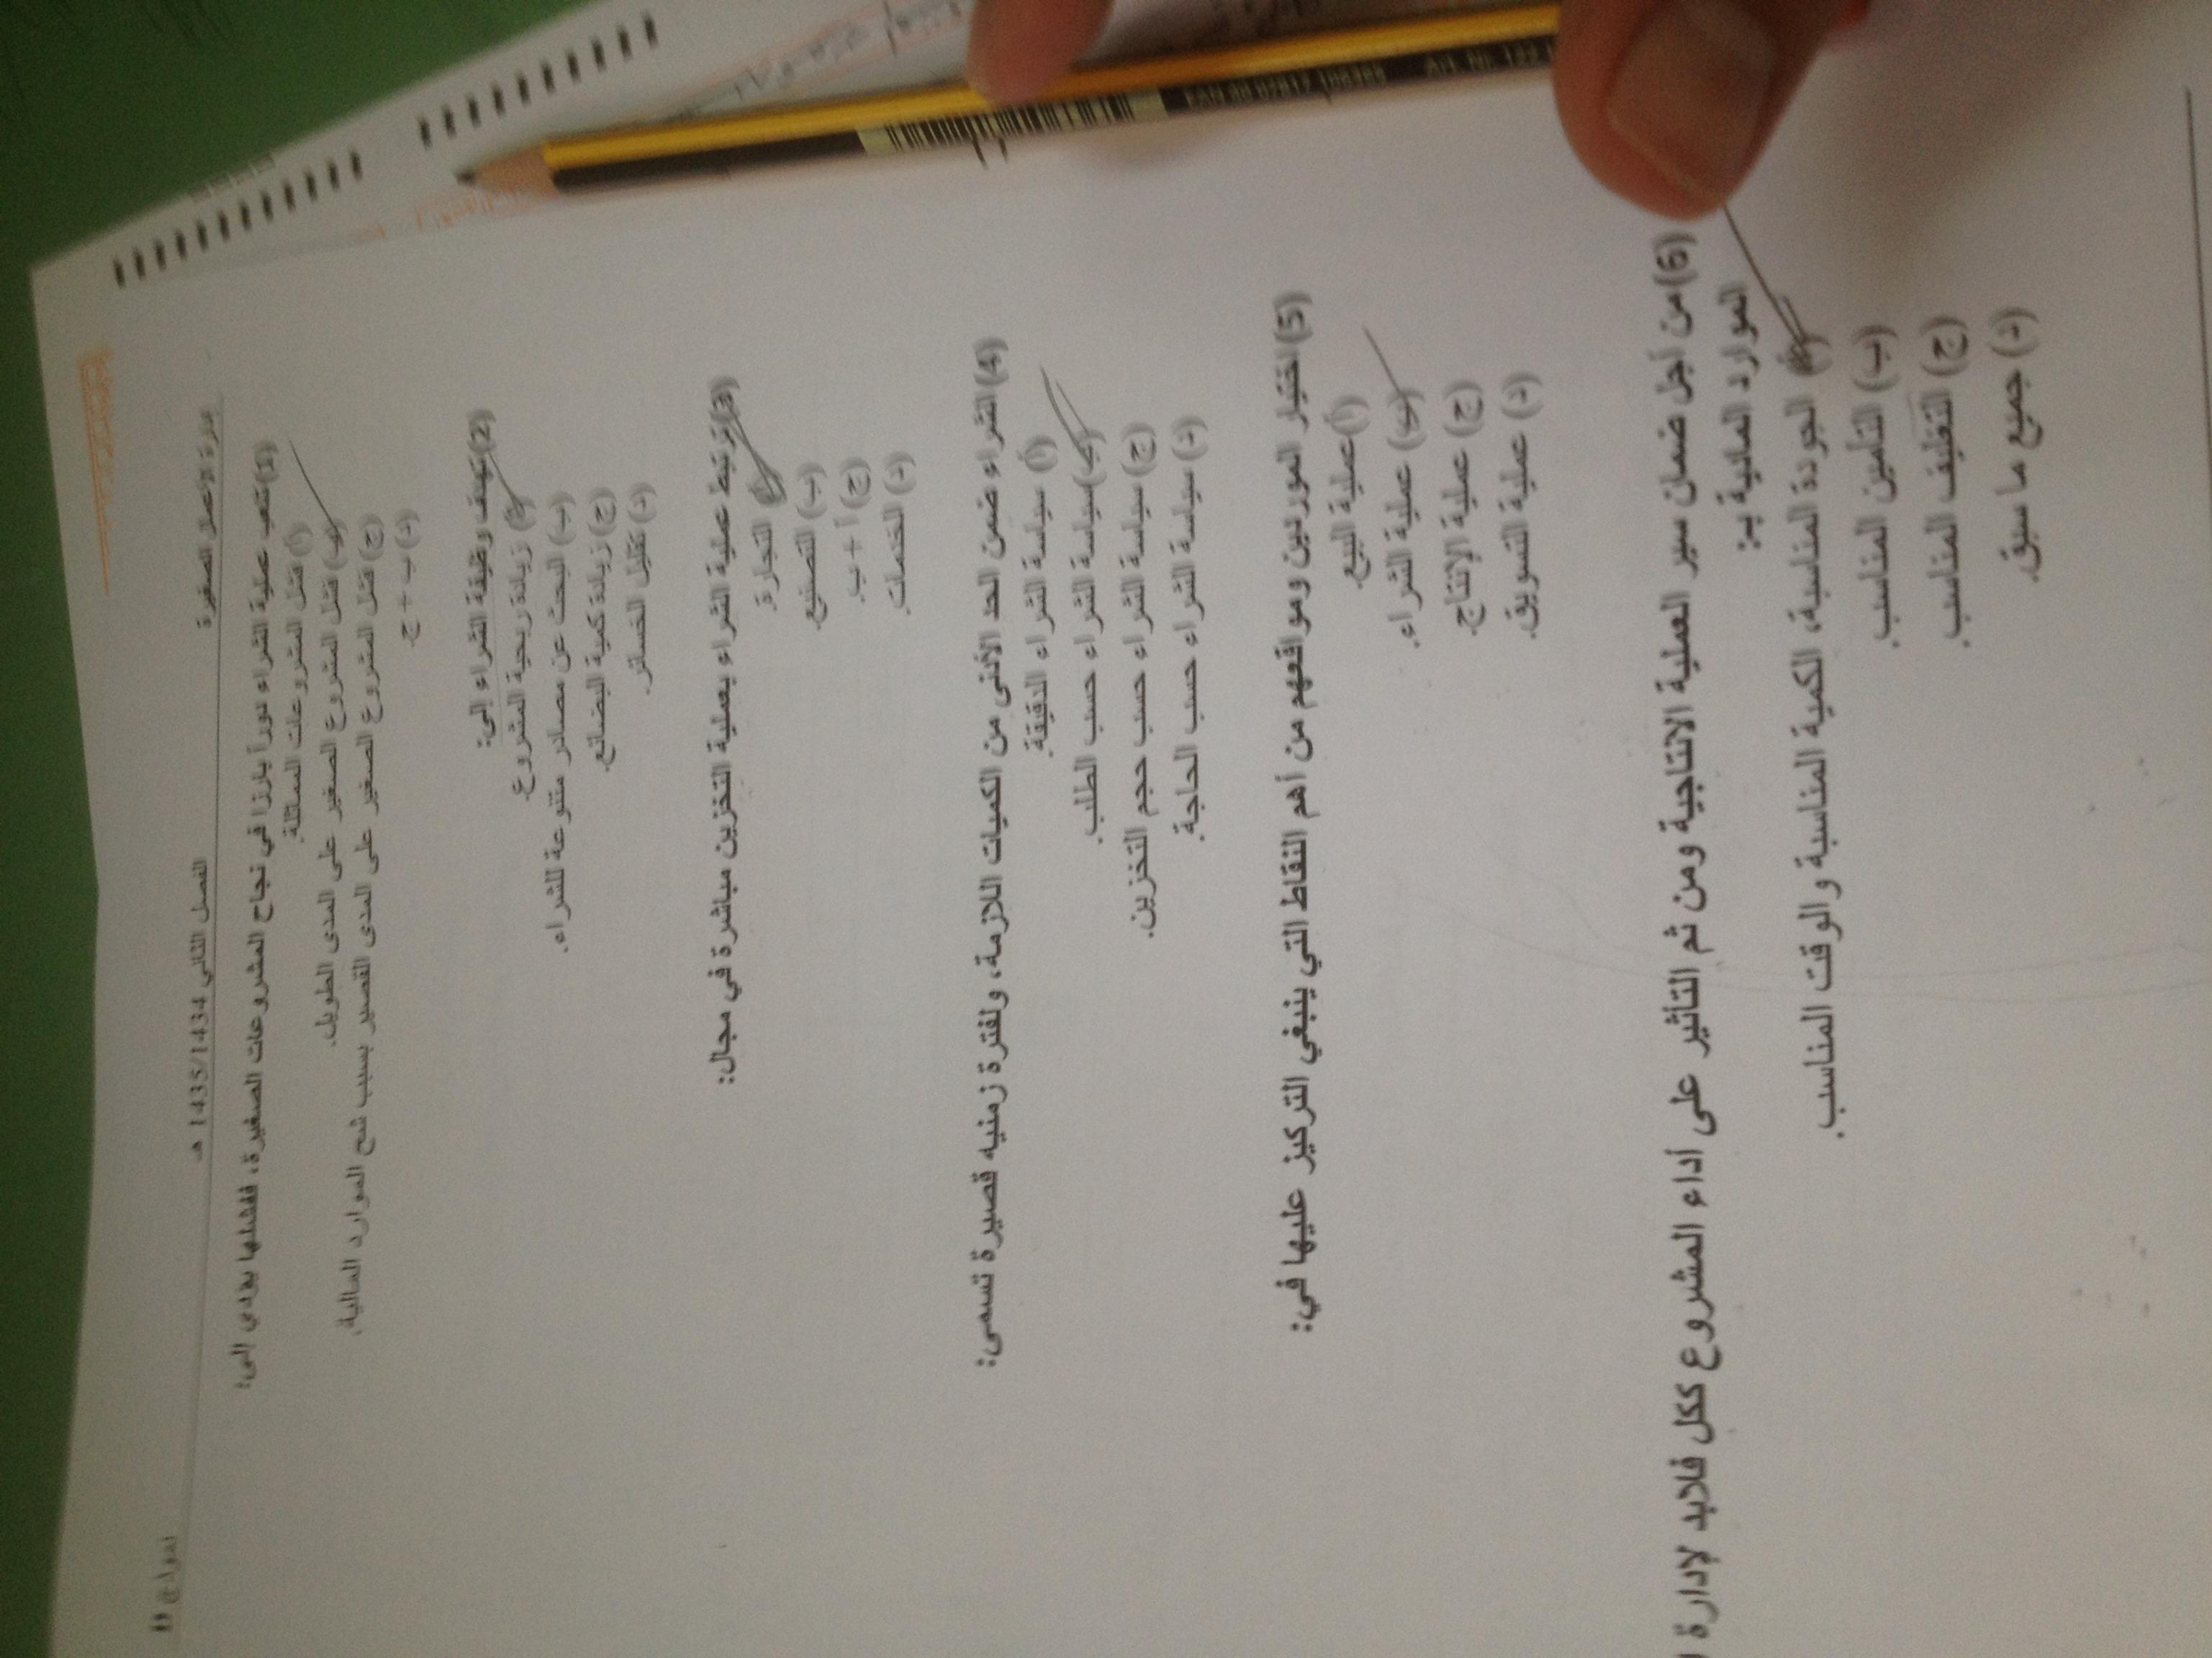 نموذج D
الفصل الثاني 1435/1434 هـ
إدارة الأعمال الصغيرة
(1) تلعب عملية الشراء دوراً بارزا في نجاح المشروعات الصغيرة، ففشلها يؤدي إلى:
(أ) فشل المشروعات المماثلة.
(ب) فشل المشروع الصغير على المدى الطويل.
(ج) فشل المشروع الصغير على المدى القصير بسبب شح الموارد المالية.
(د) ب + ج.
(2) تهدف وظيفة الشراء إلى:
(أ) زيادة ربحية المشروع.
(ب) البحث عن مصادر متنوعة للشراء.
(ج) زيادة كمية البضائع.
(د) تقليل الخسائر.
(3) ترتبط عملية الشراء بعملية التخزين مباشرة في مجال:
(أ) التجارة.
(ب) التصنيع.
(ج) أ + ب.
(د) الخدمات.
(4) الشراء ضمن الحد الأدنى من الكميات اللازمة، ولفترة زمنيه قصيرة تسمى:
(أ) سياسة الشراء الدقيقة.
(ب) سياسة الشراء حسب الطلب.
(ج) سياسة الشراء حسب حجم التخزين.
(د) سياسة الشراء حسب الحاجة.
(5) اختيار الموردين ومواقعهم من أهم النقاط التي ينبغي التركيز عليها في:
(أ) عملية البيع.
(ب) عملية الشراء.
(ج) عملية الإنتاج.
(د) عملية التسويق.
(6) من أجل ضمان سير العملية الانتاجية ومن ثم التأثير على أداء المشروع ككل فلابد لإدارة
الموارد المادية بـ:
(أ) الجودة المناسبة، الكمية المناسبة والوقت المناسب.
(ب) التأمين المناسب.
(ج) التغليف المناسب.
(د) جميع ما سبق.